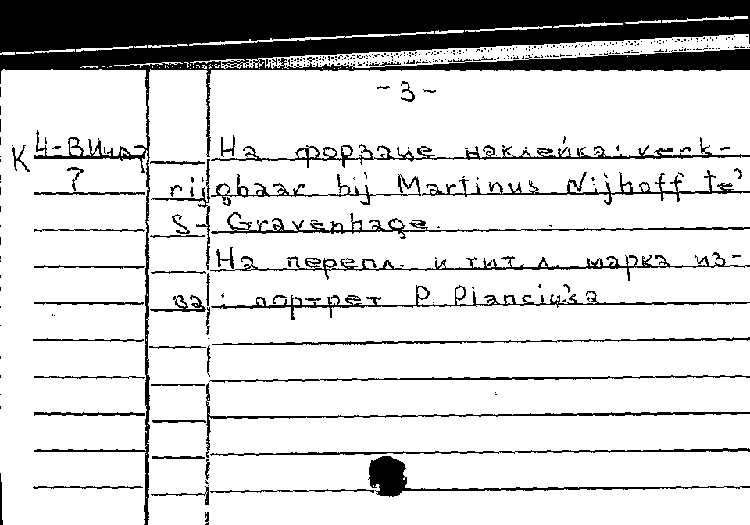 - 3 -
К 4-ВИнд
7
На форзаце наклейка: verk-
rijgbaar bij Martinus Nijhoff te'
S-Gravenhage.
На перепл. и тит. л. марка из-
ва: портрет P. Planciu'sa